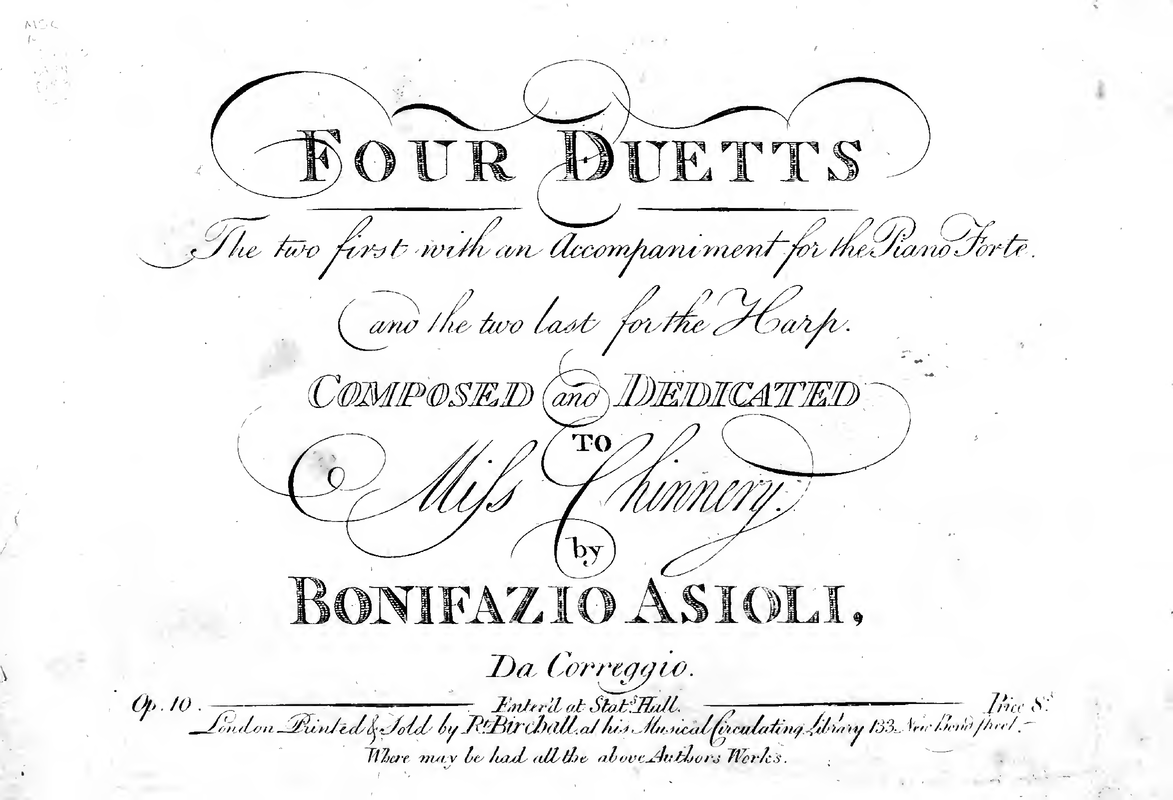 FOUR DUETTS
The two first with an Accompaniment for the Piano Forte.
and the two last for the Harp.
COMPOSED and DEDICATED
TO
Miſs Chinnery.
by
BONIFAZIO ASIOLI,
Da Correggio.
Op. 10. Enter'd at Stat.s Hall. Price 8s
London Printed & Sold by Rt. Birchall at his Musical Circulating Library 133 New Bond Street.
Where may be had all the above Authors Works.